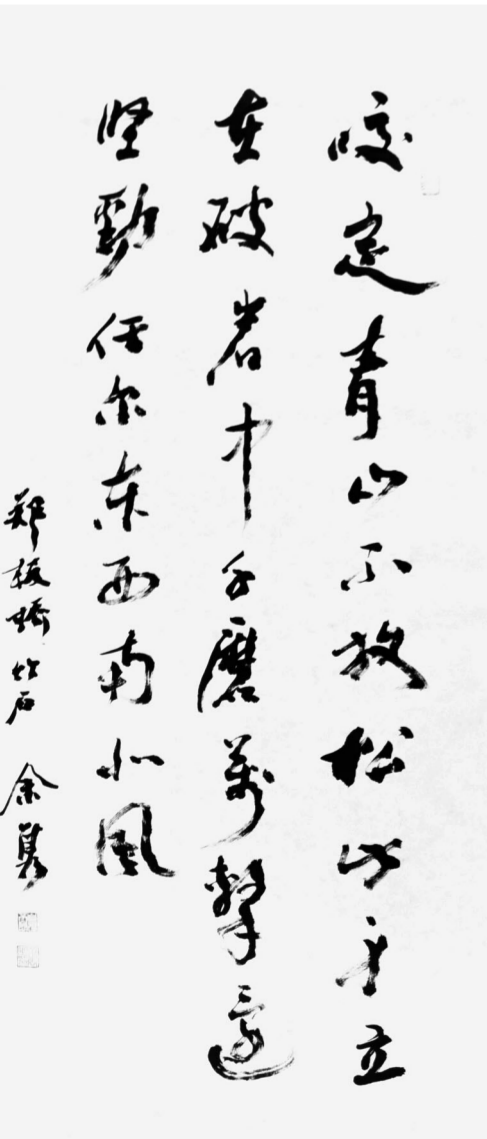 咬定青山不放松此身立
在破岩中千磨萬擊還
坚勁任尔东西南北風
郑板橋竹石 余